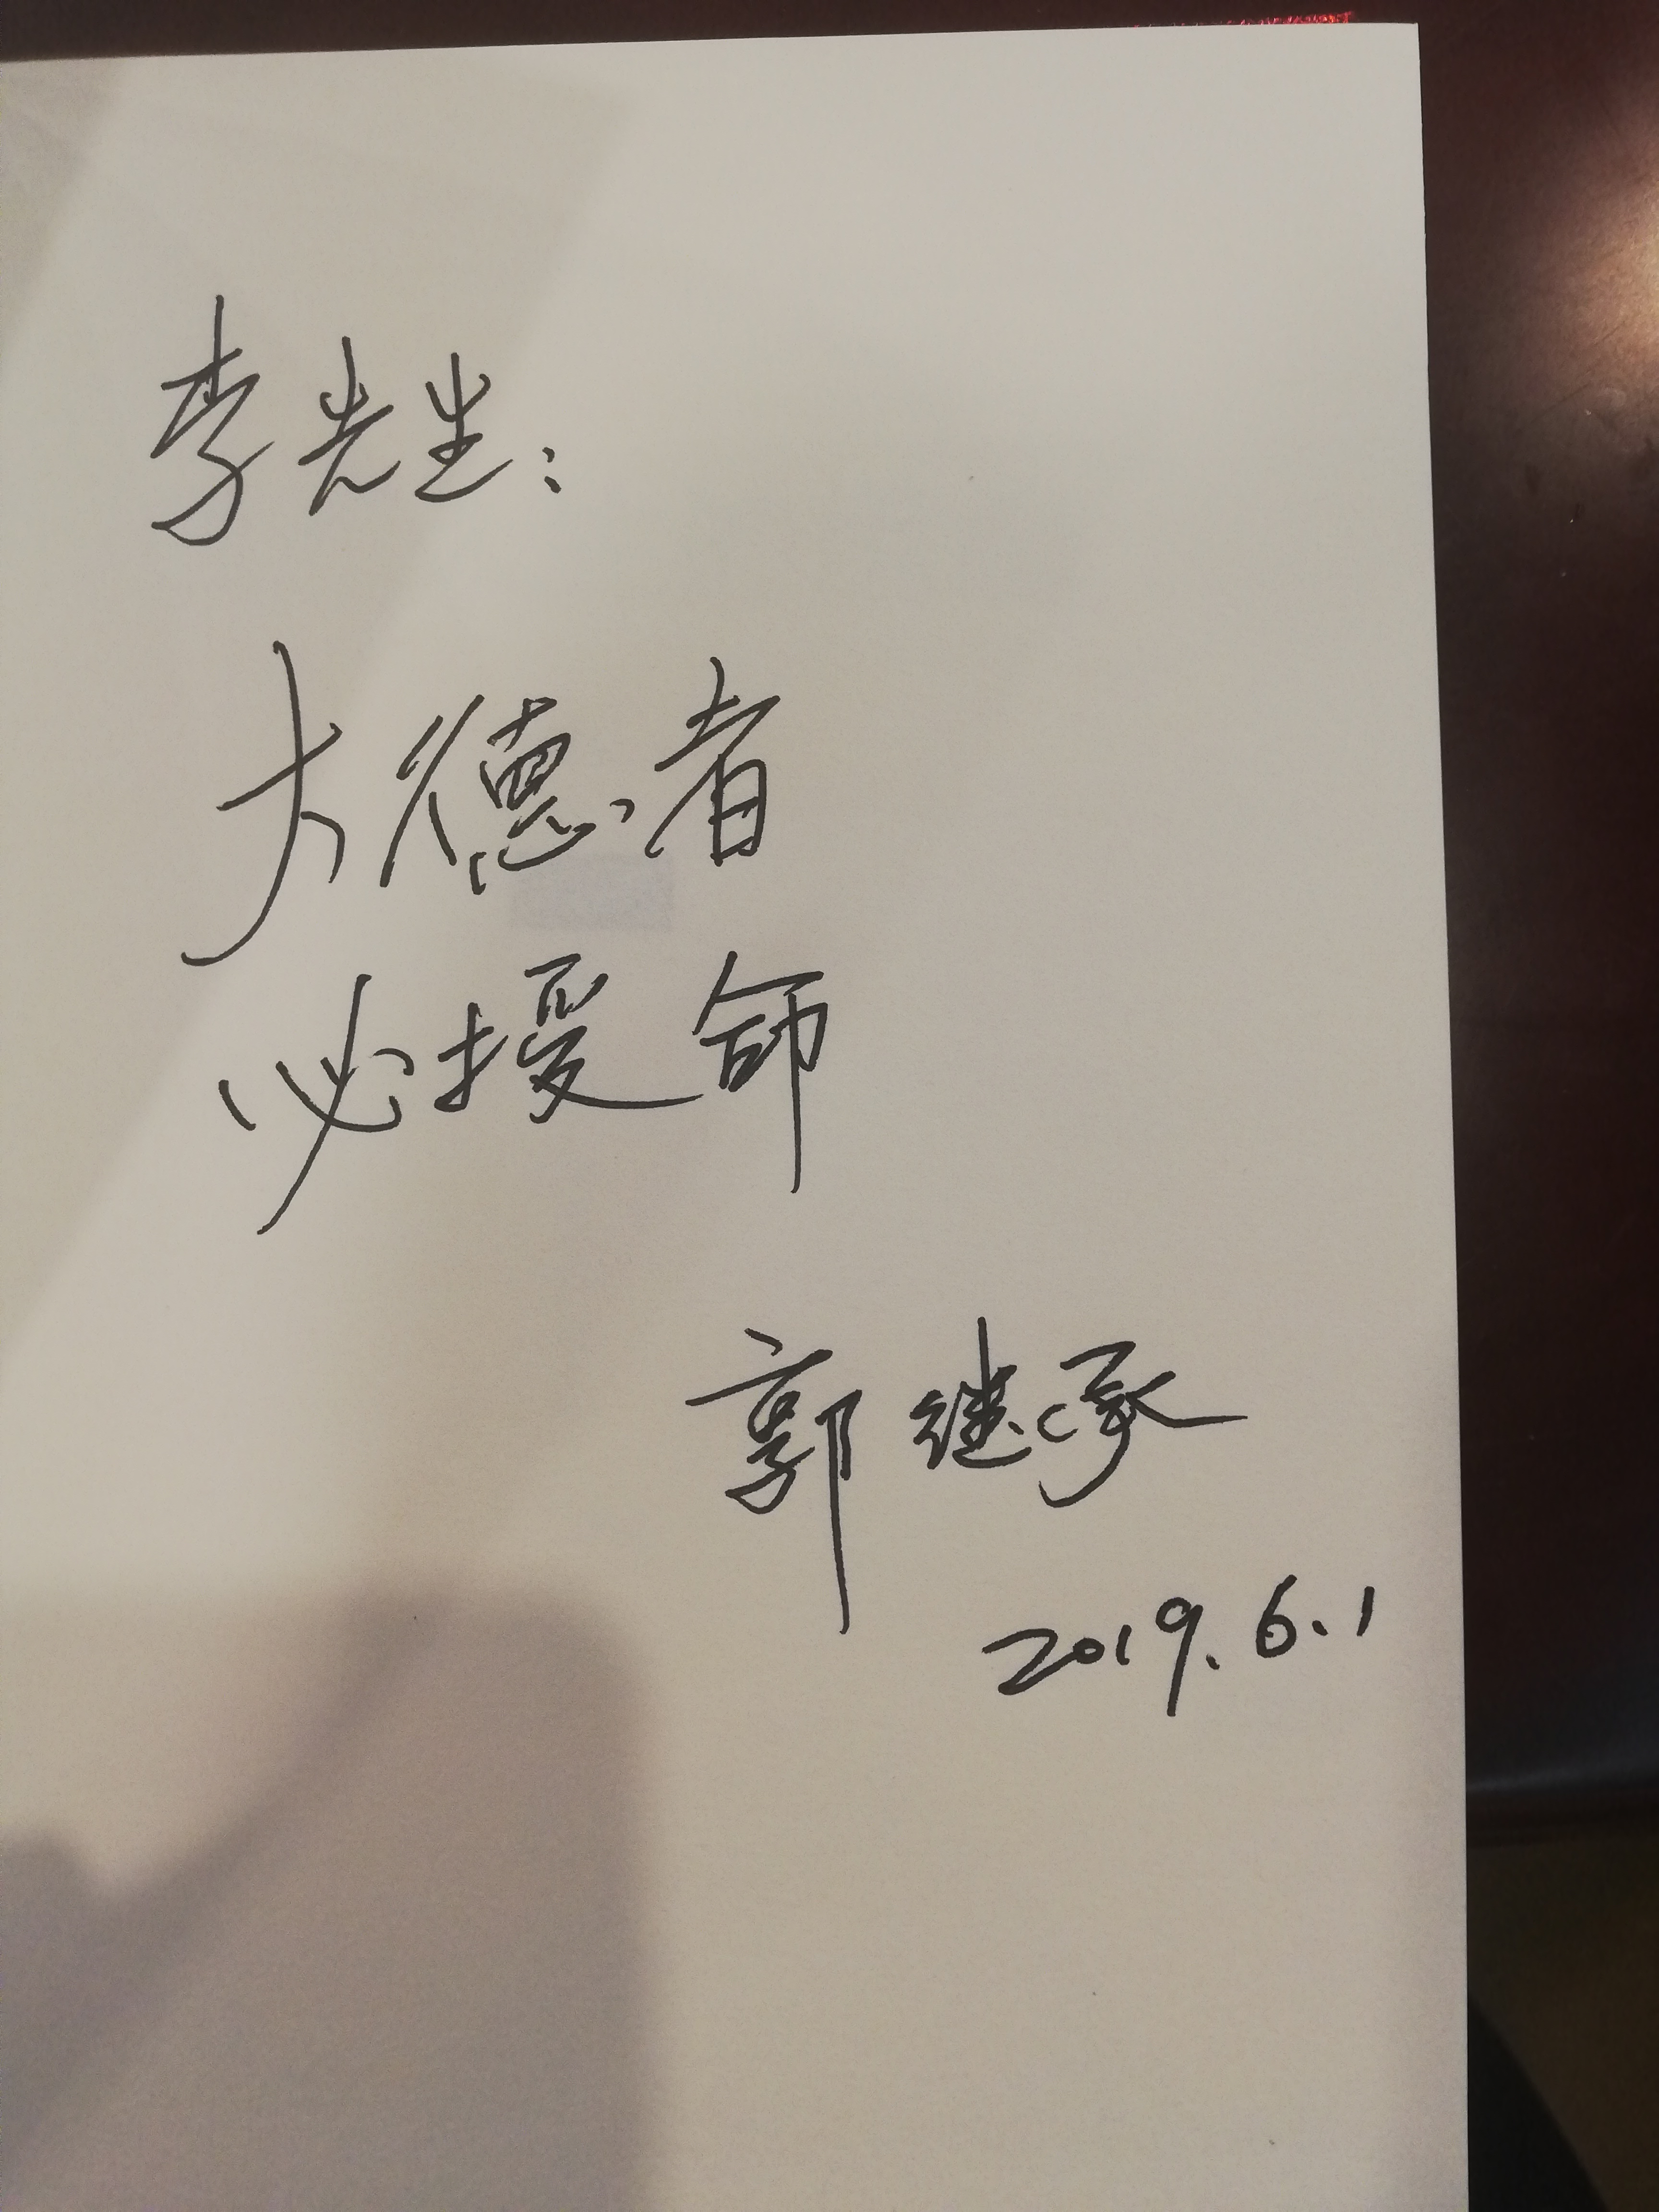 李先生：
大德者
必授命
郭继承
2019.6.1